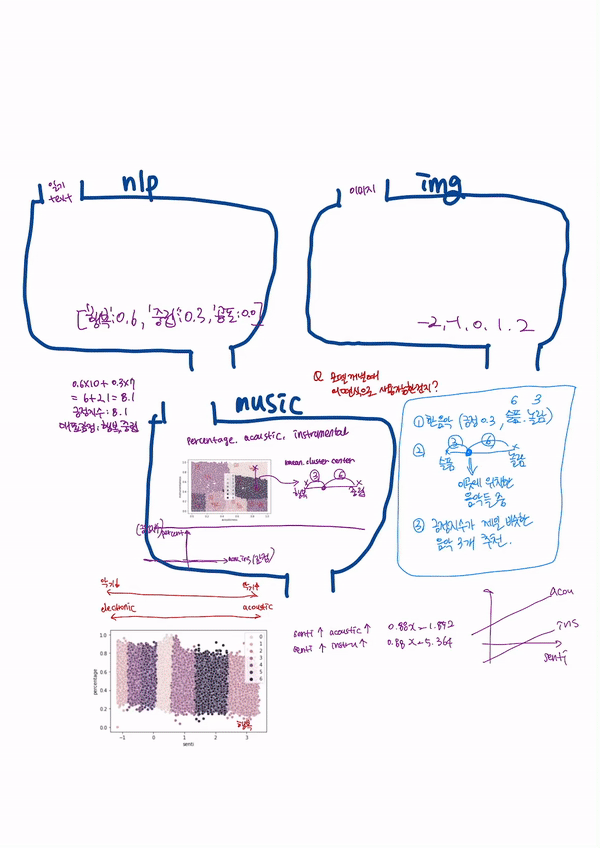 일기
text
nlp
['행복':0.6, '중립':0.3, '공포':0.0]
이미지
img
-2, -1, 0, 1, 2
0.6x10 + 0.3x7
= 6+2.1 = 8.1
긍정지수: 8.1
대표감정: 행복, 중립
Q 모델 개발에
사용가능한건지?
music
percentage, acoustic, instrumental
mean. cluster center
3 6
중립
percent
electronic acoustic
1.0
0.8
0.6
0.4
0.2
0.0
percentage
-1 0 1 2 3
senti
0
1
2
3
4
5
6
행복
6 3
① 한음악 (긍정 0.3, 슬픔, 놀람)
②
3 6
슬픔 놀람
이웃에 위치한
음악들 중
③ 긍정지수가 제일 비슷한
음악 3개 추천.
senti ↑ acoustic ↑ 0.88x-1.892
senti ↑ instru ↑ 0.88x-5.364
acou
ins
senti